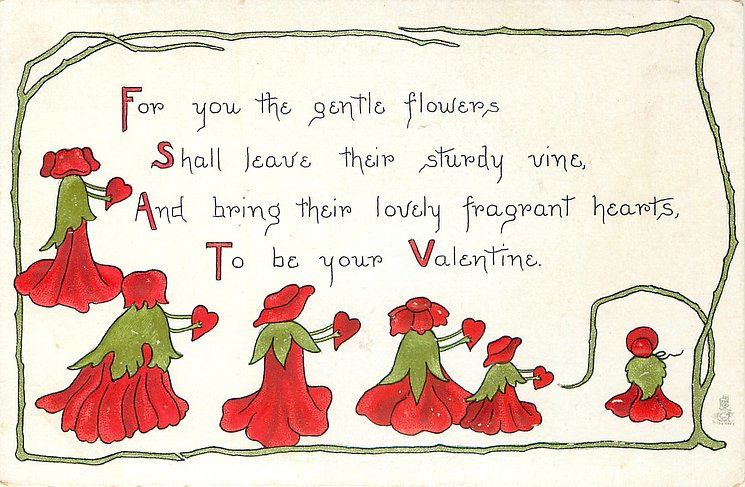 For you the gentle flowers
Shall leave their sturdy vine,
And bring their lovely fragrant hearts,
To be your Valentine.